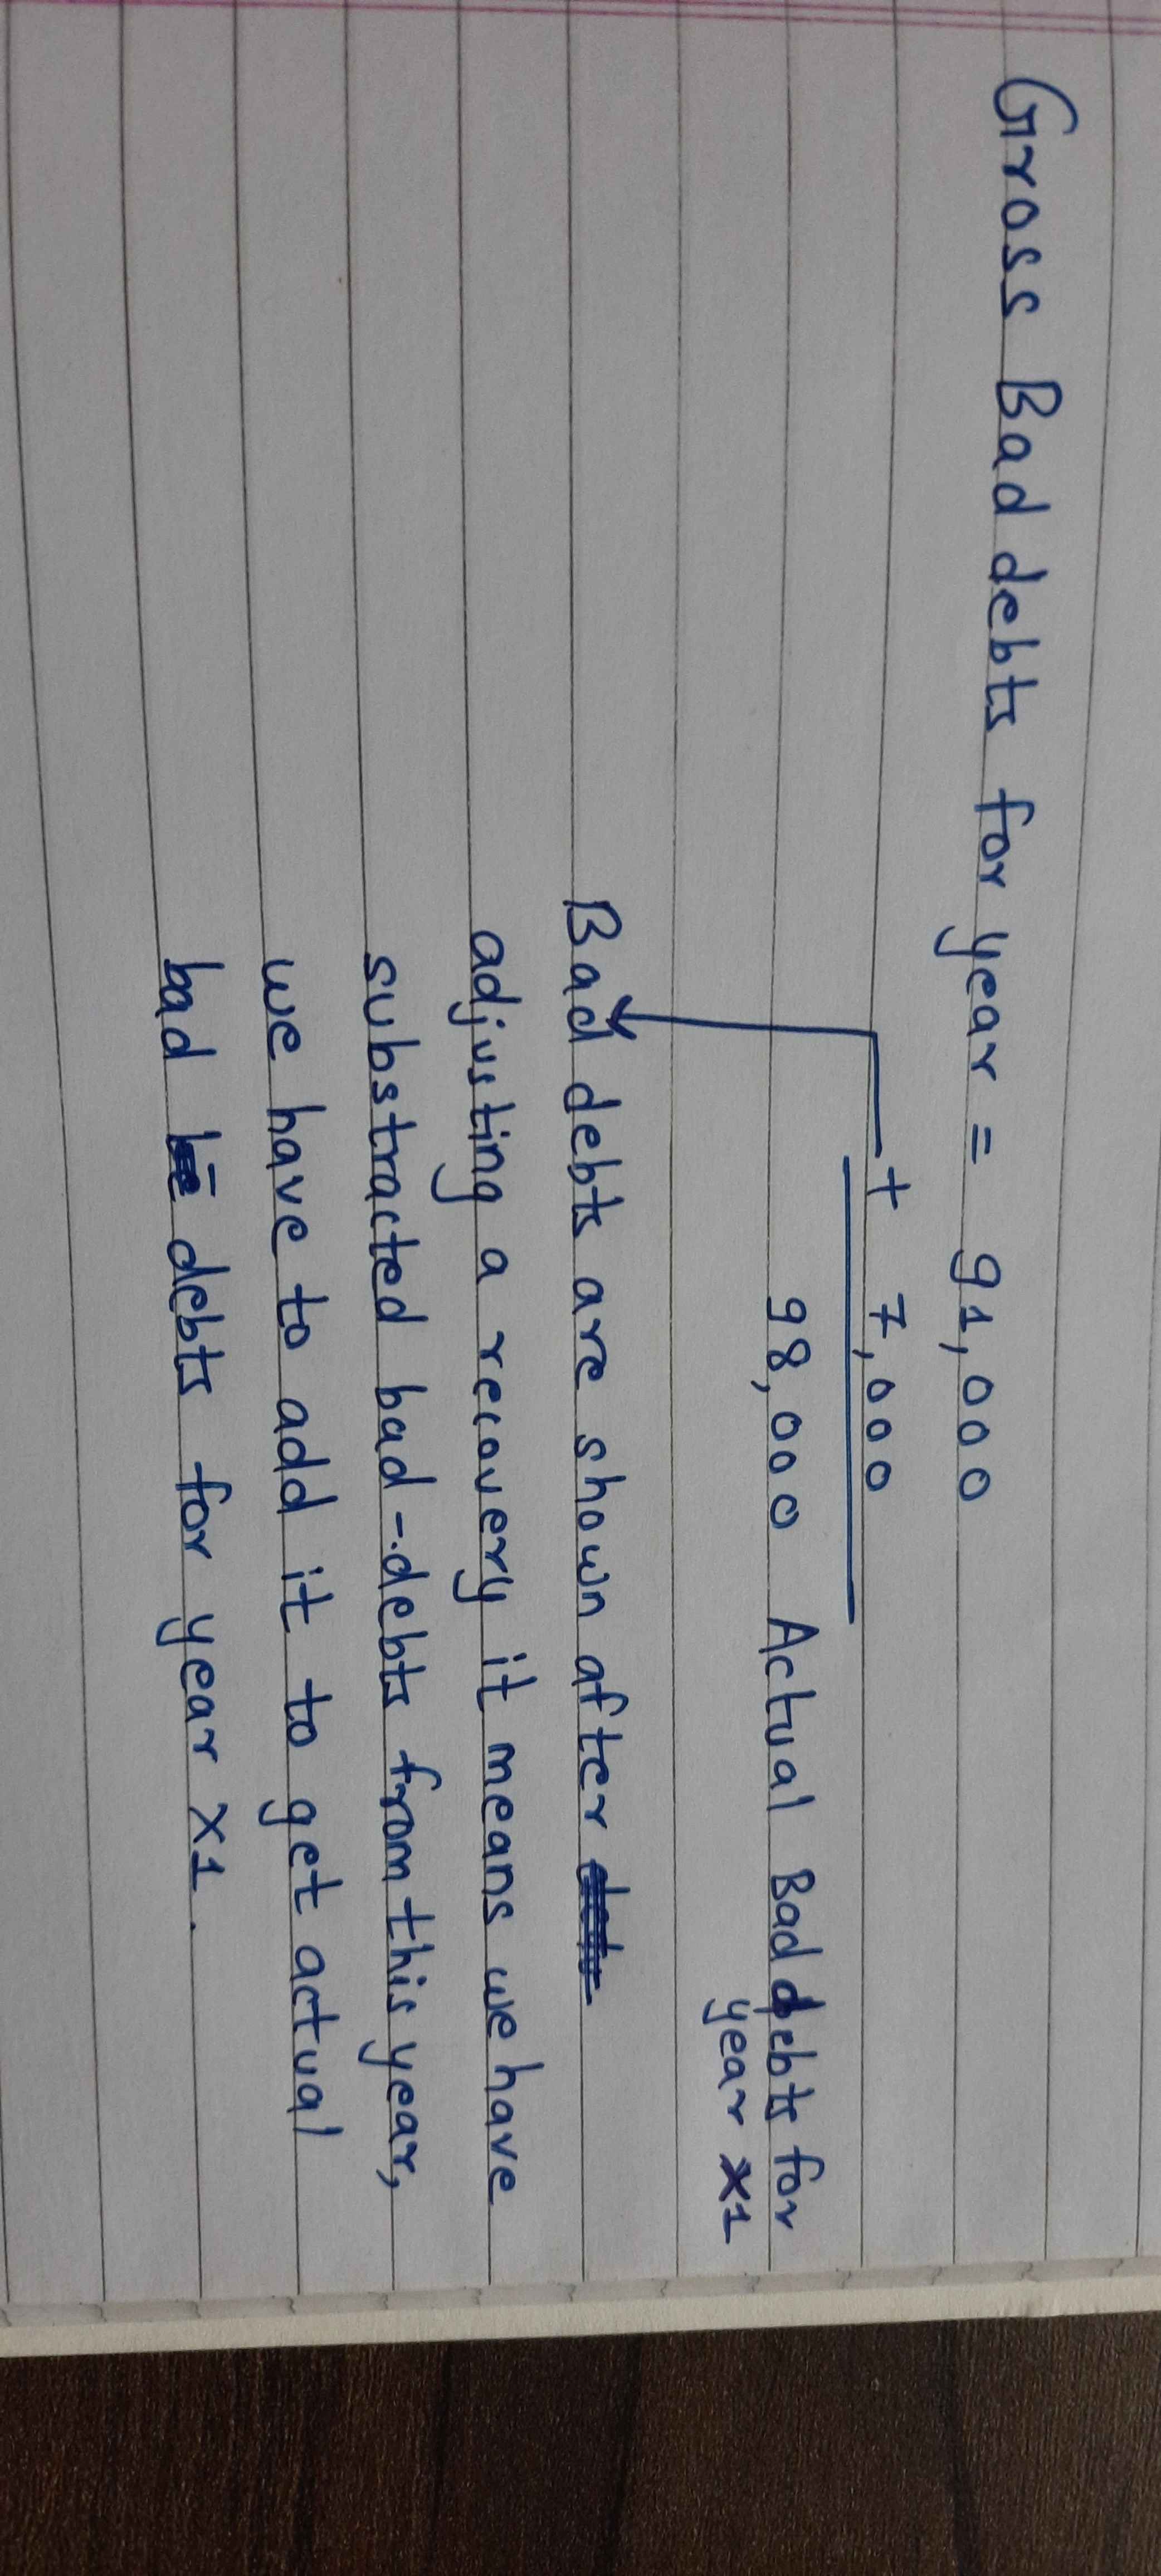 Gross Bad debts for year = 91,000
+ 7,000
98,000 Actual Bad debts for
year X1
Bad debts are shown after
adjusting a recovery it means we have
substracted bad-debts from this year,
we have to add it to get actual
bad debts for year X1.